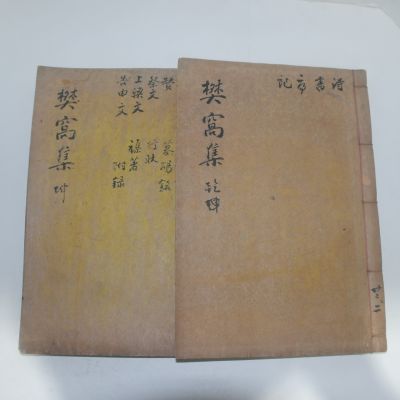 樊窩集 乾坤
詩
書
序
記
樊窩集 坤
贊
祭文
上樑文
告由文
墓碣銘
行狀
雜著
附録